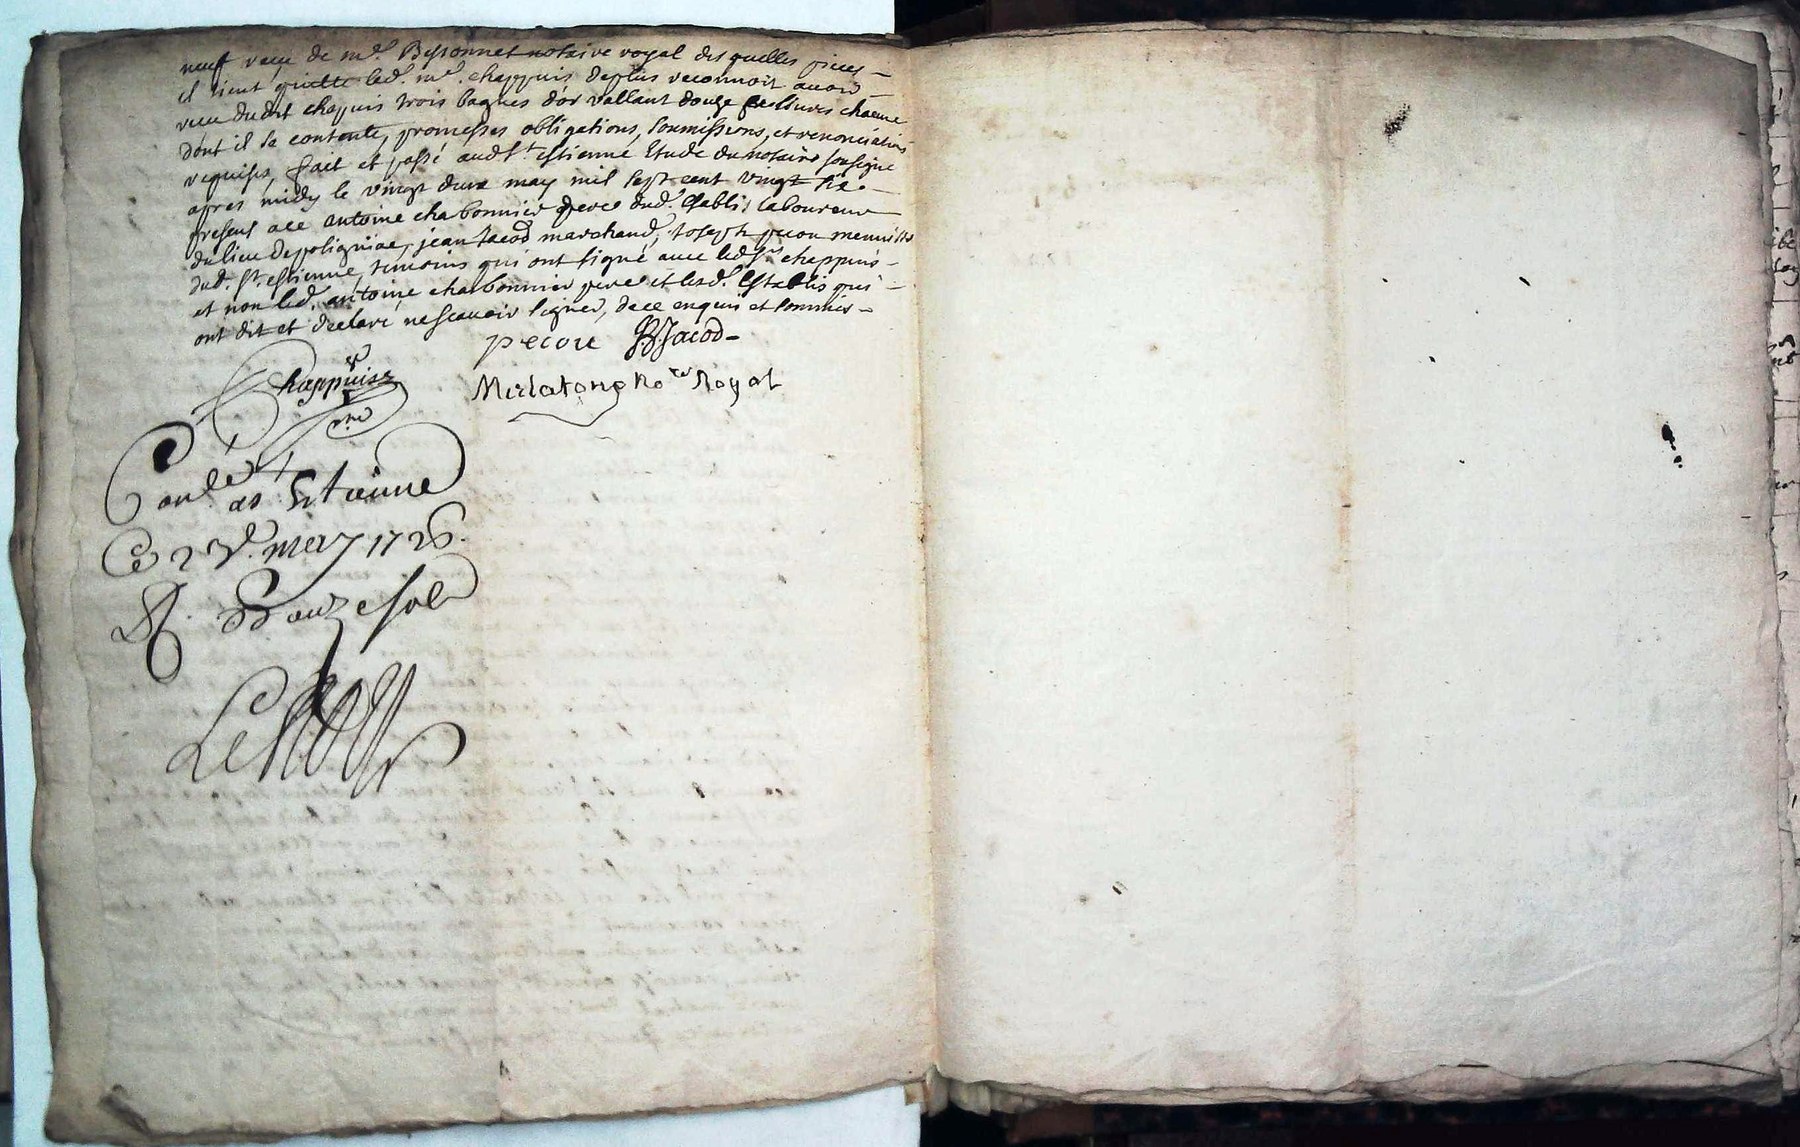 neuf receu de me. Bessonnet notaire royal des quelles pieces
il tient quitte led. me. chappuis deplus reconnoit avoir
receu dudit chapuis trois bagues d'or vallant douze livres chacune
dont il se contente, promesses obligations, soumissions, et renonciations
requises, fait et passé audt. st estienne Etude du notaire soussigné
apres midy le vingt deux may mil sept cent vingt six.
presens a ce antoine charbonnier pere dud. Establi laboureur
du lieu de poligniac, jean Jacod marchand, Joseph menuisier
dud. st. estienne, temoins qui ont signé avec led. sr. chappuis
et non led. antoine charbonnier pere et lesd. Establis qui
ont dit et declaré ne scavoir signer, de ce enquis et sommés
pecou Jacod
Chappuise
Royal
Conle. as Sttienne
Ce may 1726.
R. Douze sols